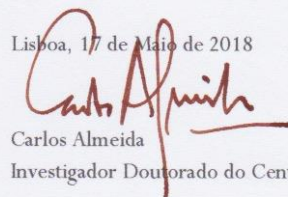 Lisboa, 17 de Maio de 2018
Carlos Almeida
Carlos Almeida
Investigador Doutorado do Cent